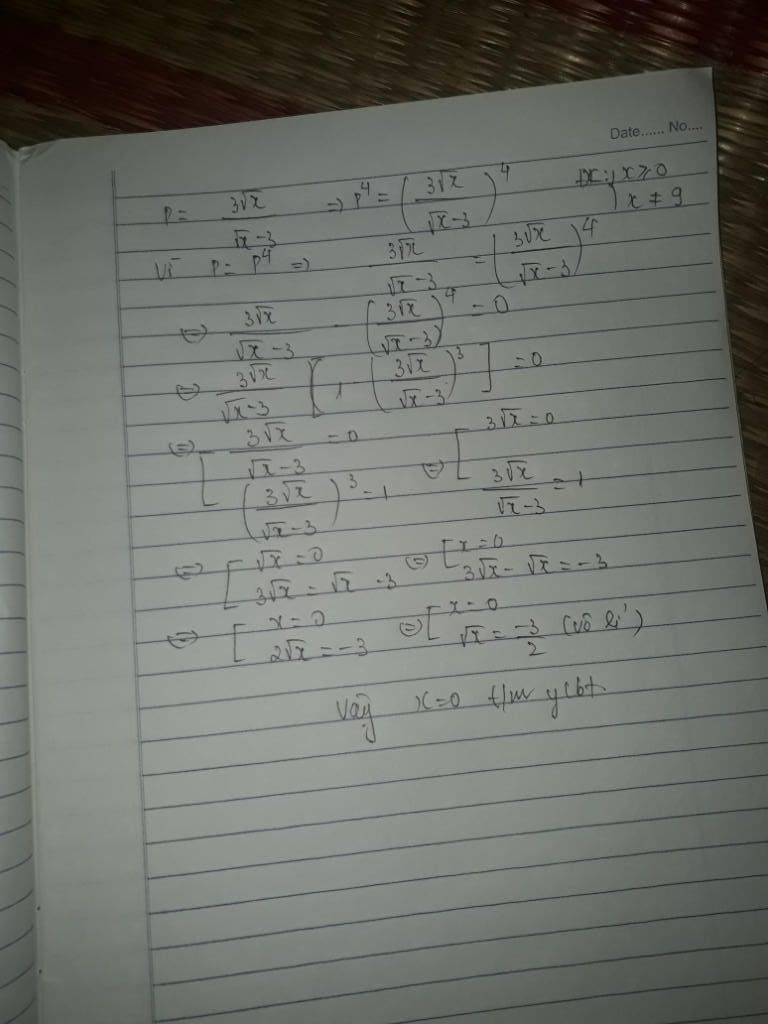 Date...... No....
P = 3√x/(√x-3) => P⁴ = (3√x/(√x-3))⁴ ĐK: x ≥ 0
x ≠ 9
Vì P = P⁴ => 3√x/(√x-3) = (3√x/(√x-3))⁴
<=> 3√x/(√x-3) - (3√x/(√x-3))⁴ = 0
<=> 3√x/(√x-3) [1 - (3√x/(√x-3))³] = 0
<=> [ 3√x/(√x-3) = 0 <=> [ 3√x = 0
(3√x/(√x-3))³ = 1 3√x/(√x-3) = 1
<=> [ √x = 0 <=> [ x = 0
3√x = √x - 3 3√x - √x = -3
<=> [ x = 0 <=> [ x = 0
2√x = -3 √x = -3/2 (vô lí)
Vậy x = 0 t/m ycbt.